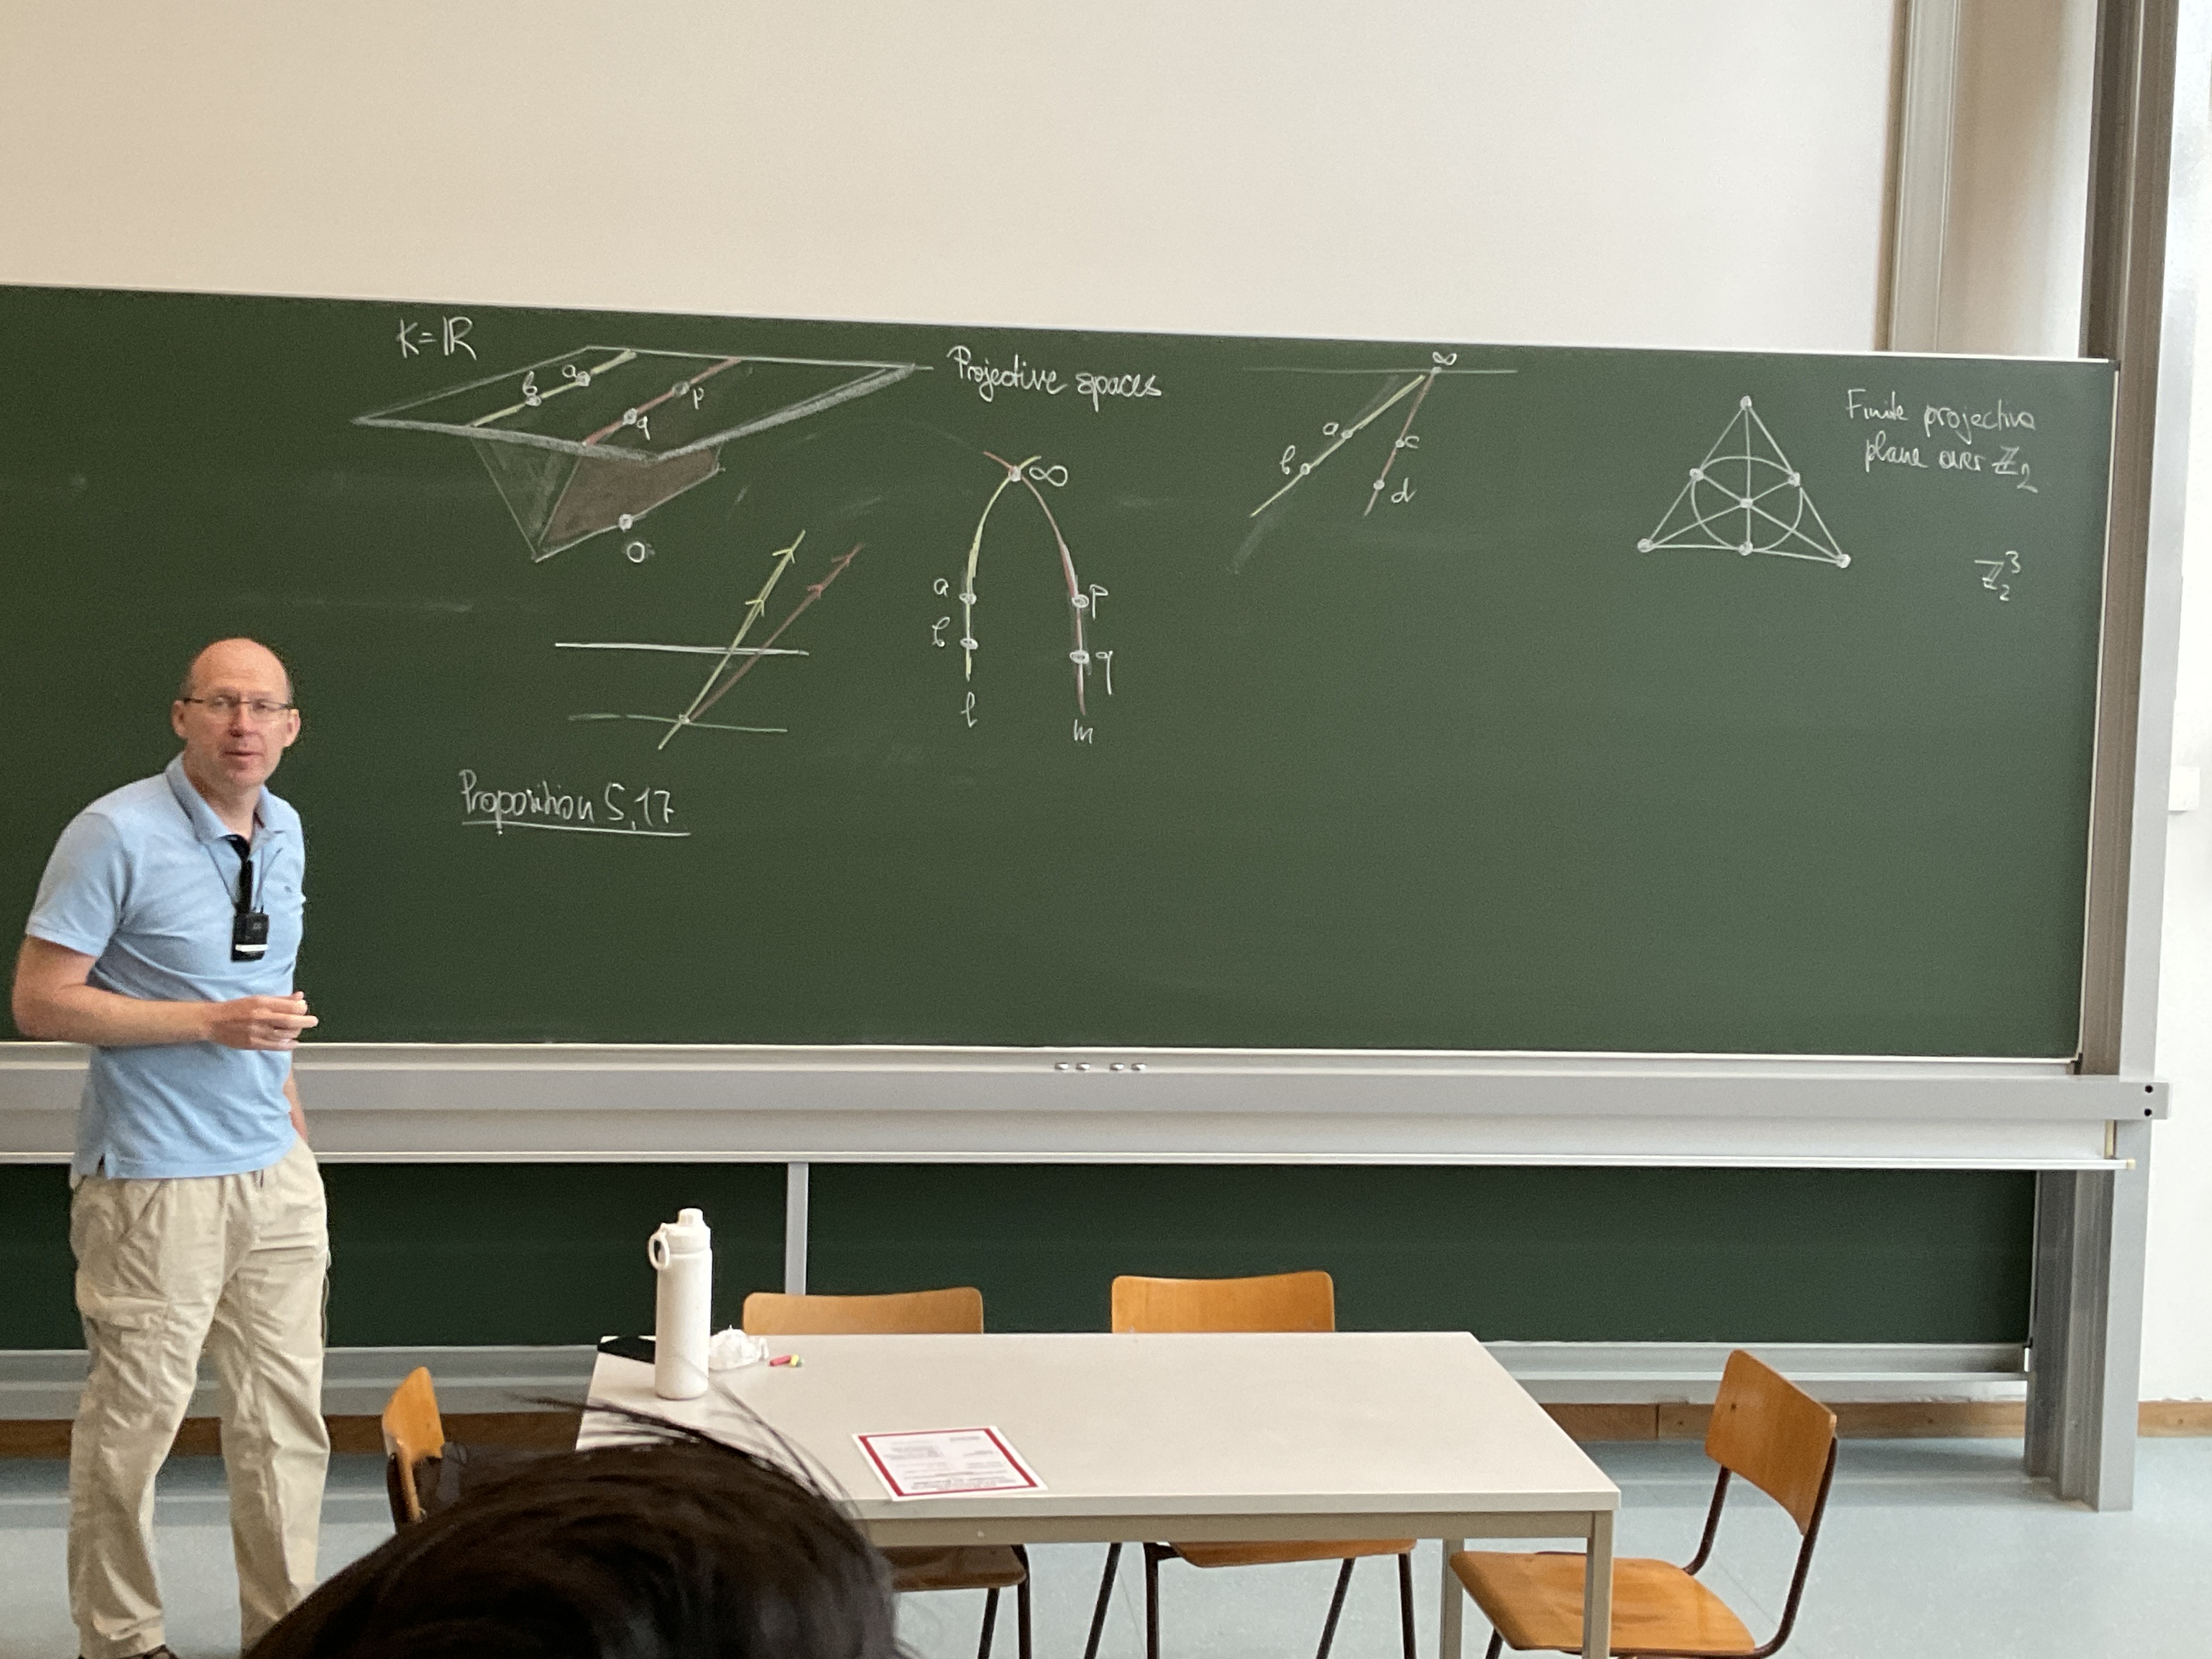 K=ℝ
b a
q p
O
Projective spaces
∞
a p
b q
l m
∞
a c
b d
Finite projective
plane over ℤ₂
ℤ₂³
Proposition 5.17